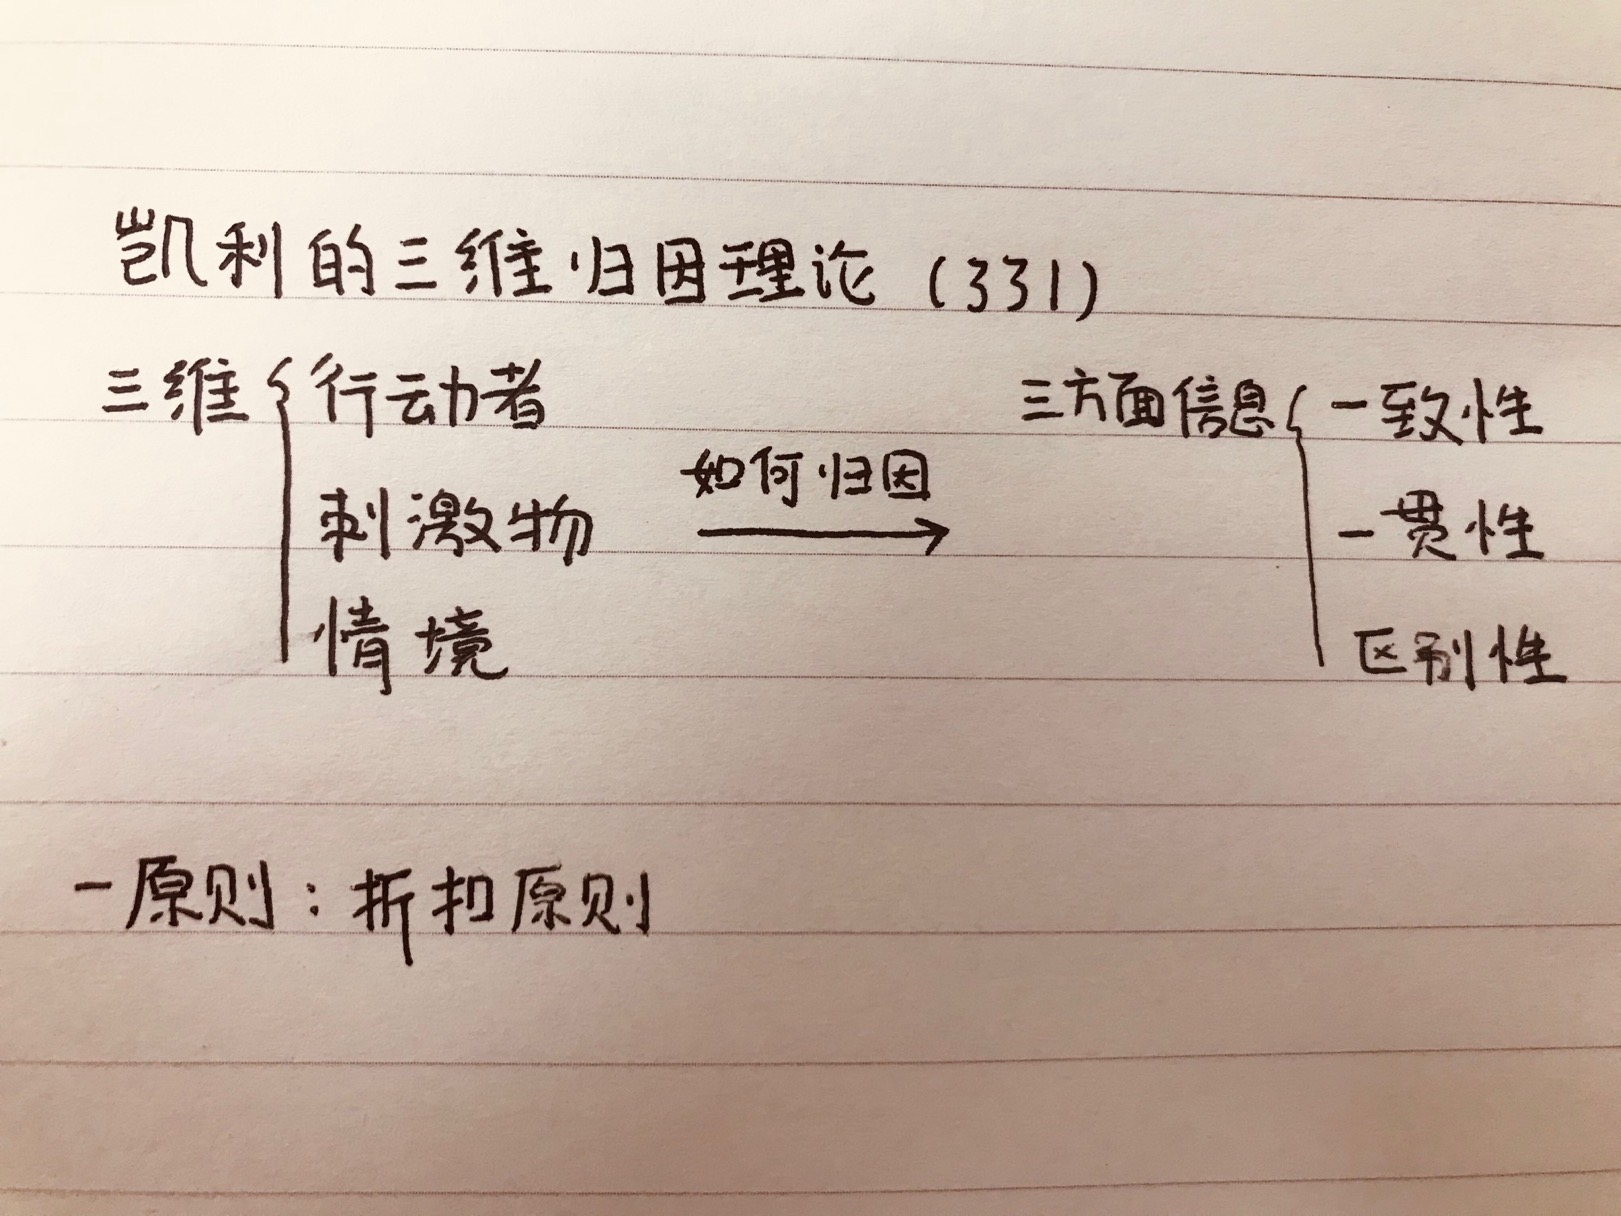 凯利的三维归因理论（331）
三维{行动者 三方面信息{一致性
如何归因
刺激物 一贯性
情境 区别性
一原则：折扣原则